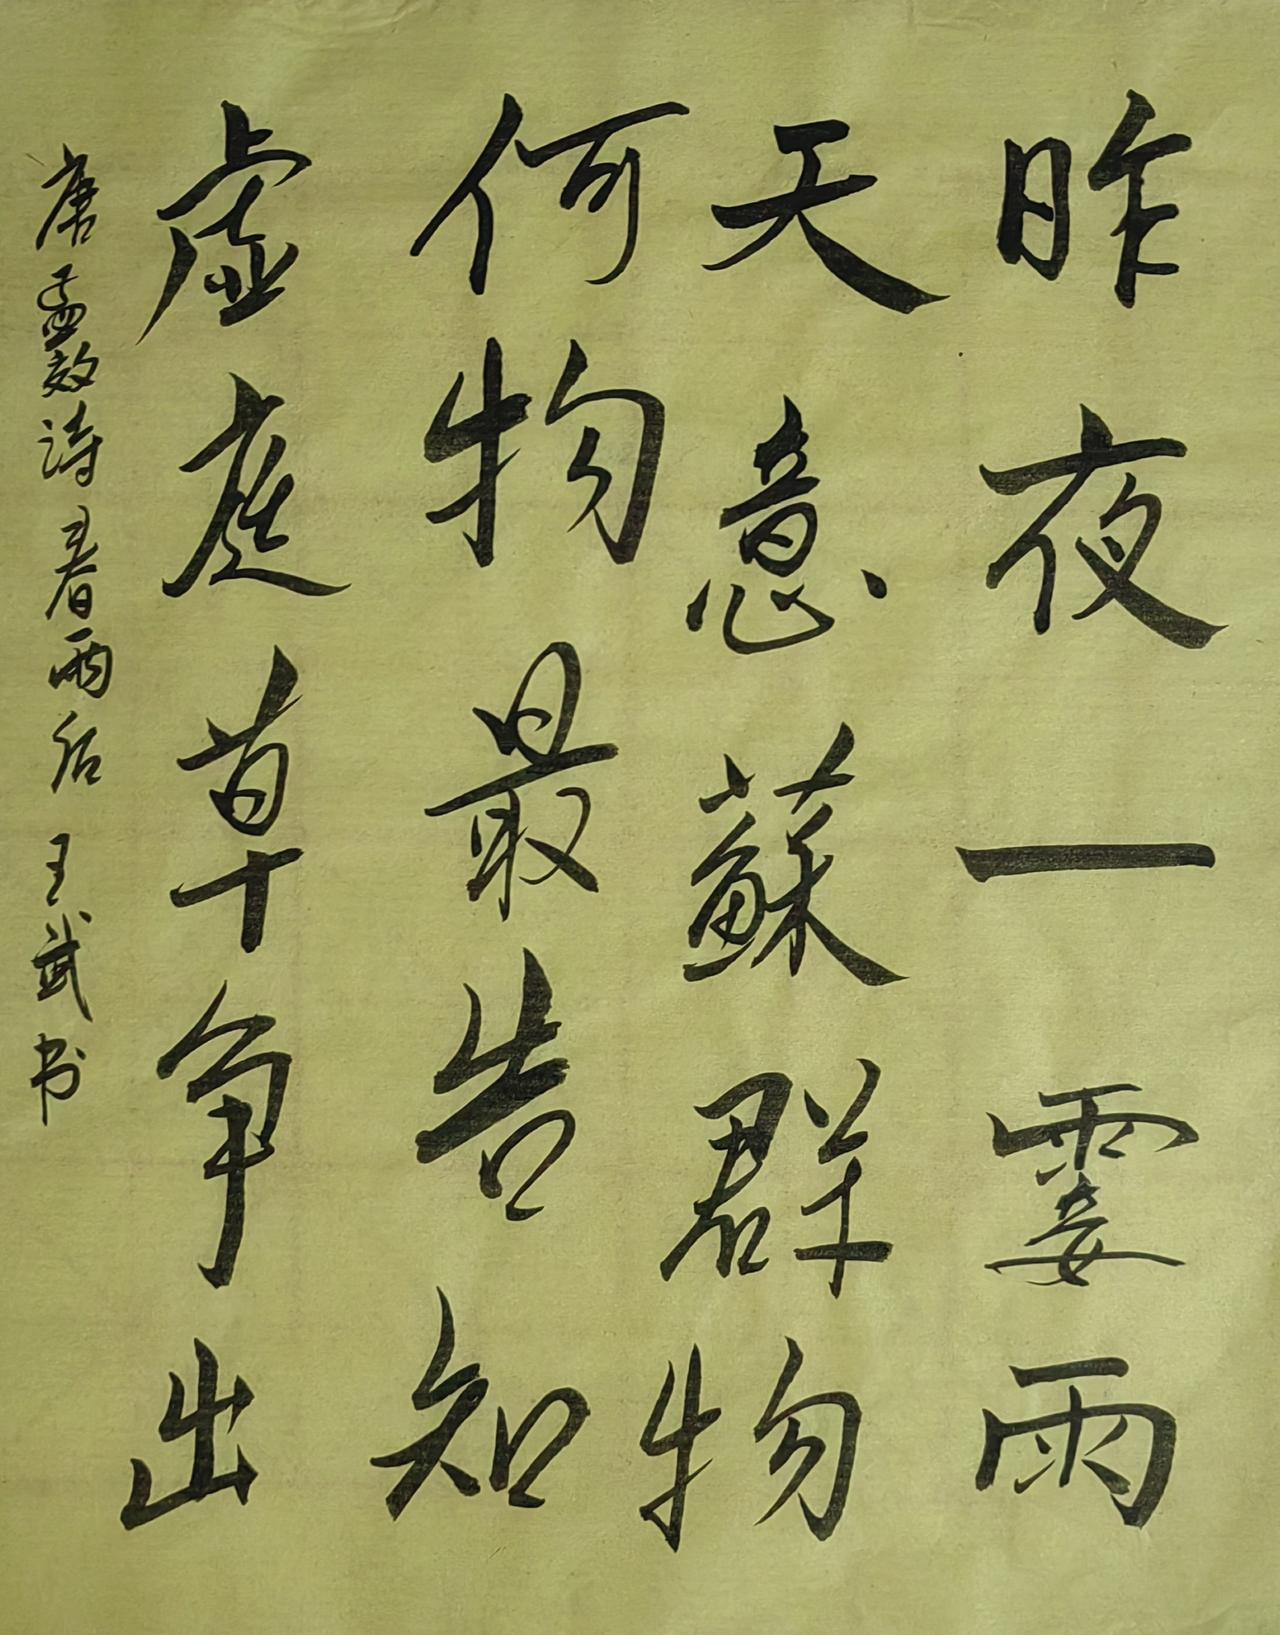 昨夜一霎雨
天意蘇群物
何物最告知
虚庭草争出
唐孟效诗春雨后 王武书